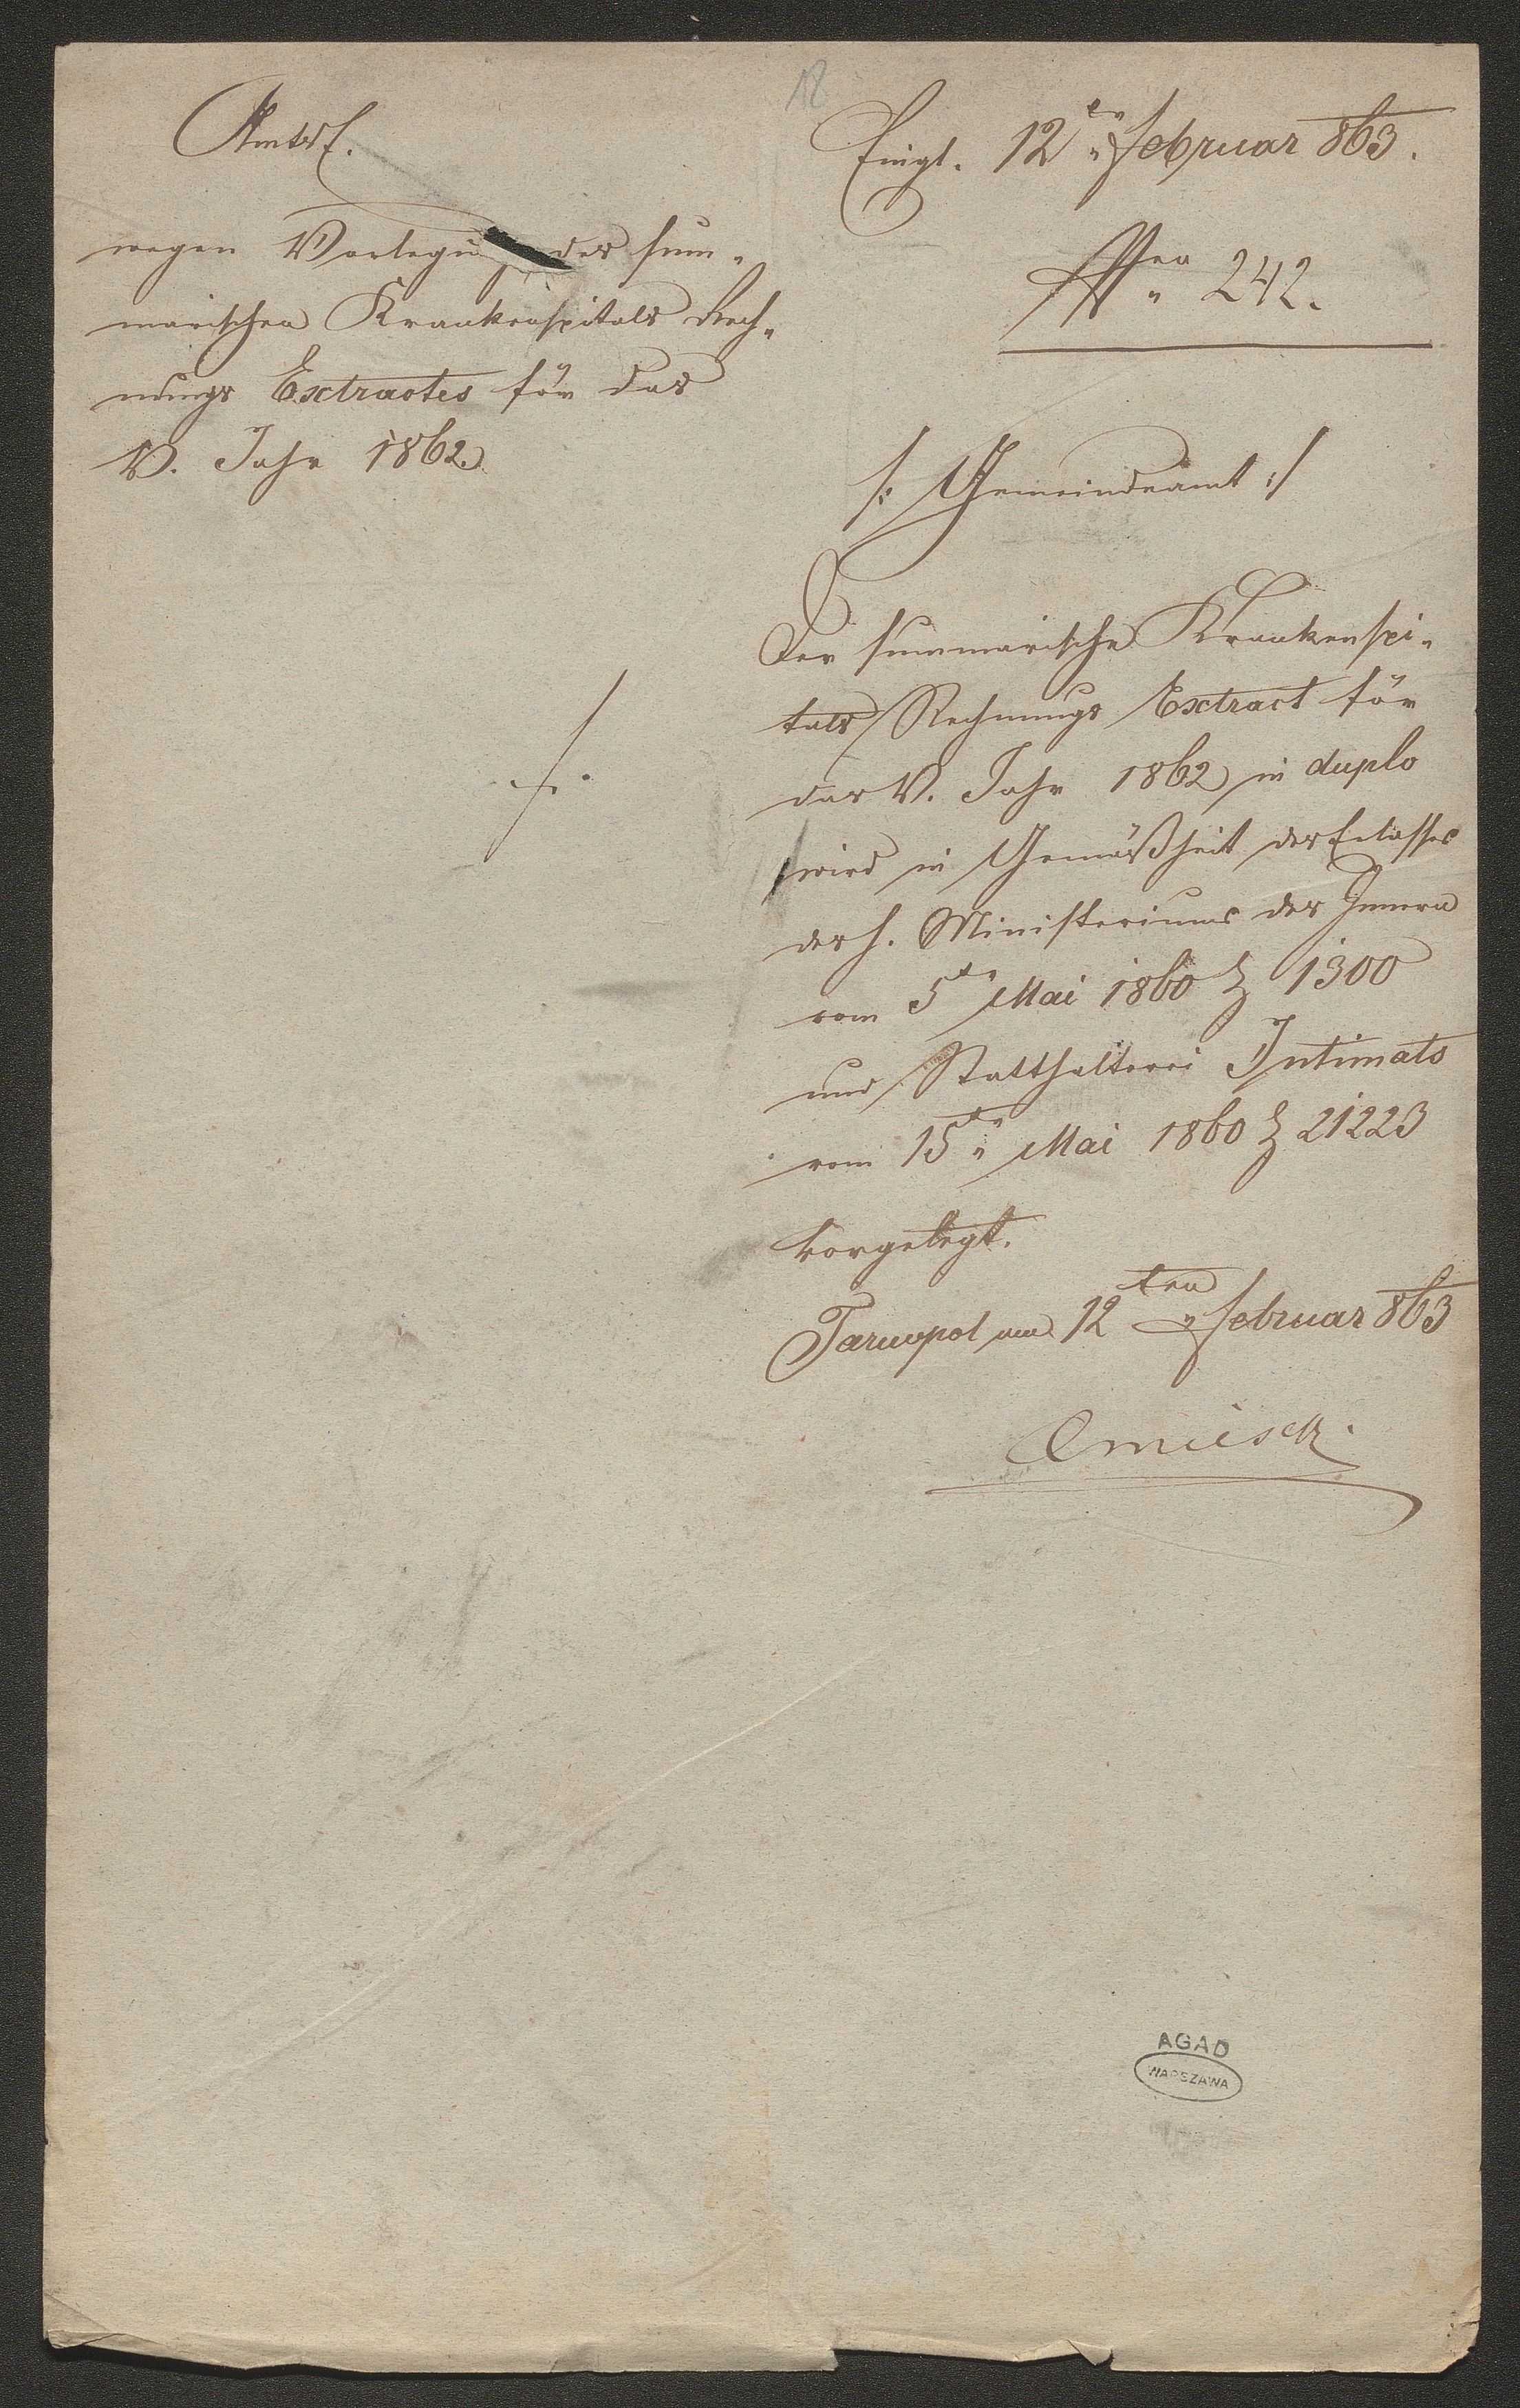 12
Amts
wegen Vorlegung des sum-
marischen Krankenspitals Rech-
nungs Extractes für das
V. Jahr 1862.
Eingl. 12ten Februar 863.
242.
/: Gemeindeamt :/
Der summarische Krankenspi-
tals Rechnungs Extract für
das V. Jahr 1862 in duplo
wird in Gemäßheit des Erlasses
des h. Ministeriums des Innern
vom 5ten Mai 1860 Z 1300
und Statthalterei Intimats
vom 15ten Mai 1860 Z 21223
vorgelegt.
Tarnopol am 12ten Februar 863
AGAD
WARSZAWA